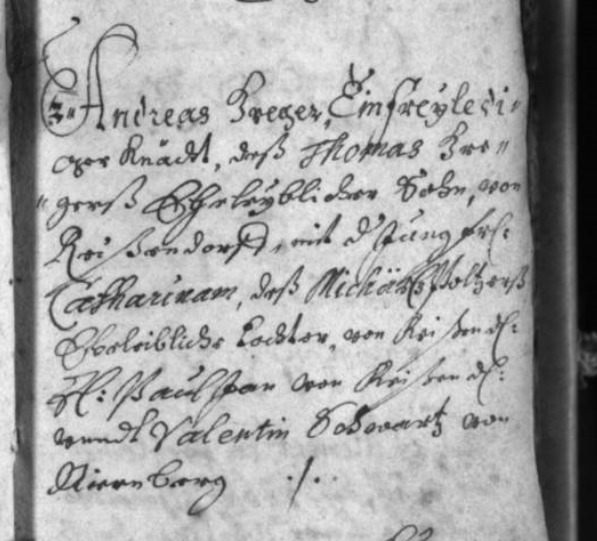 3. Andreas Breger, Ein freyledi=
ger Knächt, deß Thomas Bre=
=gerß Eheleyblicher Sohn, von
Reißendorf, mit d Jungfr:
Catharinam, deß Michäels
Eheleibliche Tochter, von Reißend:
Paul von Reißend:
vnndt Valentin Schwartz von
Niernberg ./.